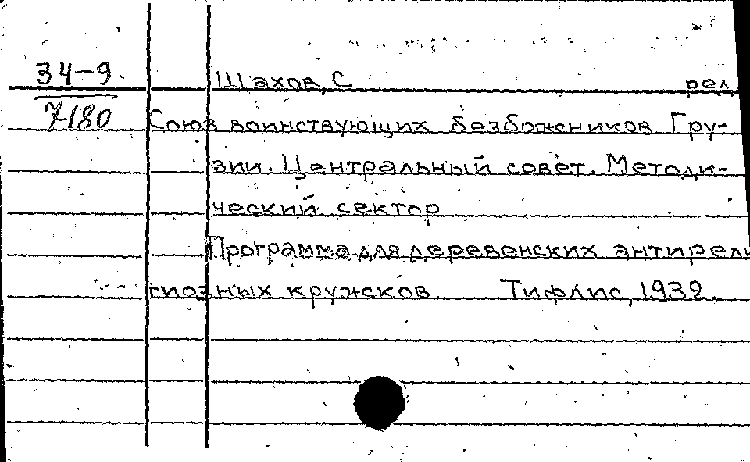 34-9 Шахов, С. рел.
7180 Союз воинствующих безбожников Гру-
зии. Центральный совет. Методи-
ческий сектор
Программа для деревенских антирели
гиозных кружков. Тифлис, 1932.